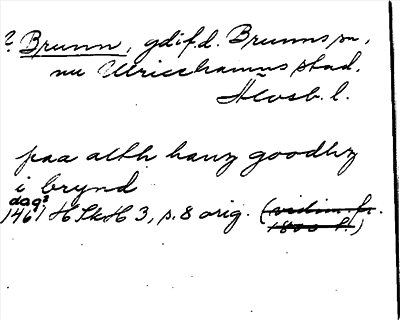 ? Brunn, gd i f.d. Brunns sn,
nu Ulricehamns stad.
Älvsb. l.
paa alth hanz goodhz
i brynd
dag?
1461 HSkH 3, s. 8 orig. (vidim. fr.
1800 t.)